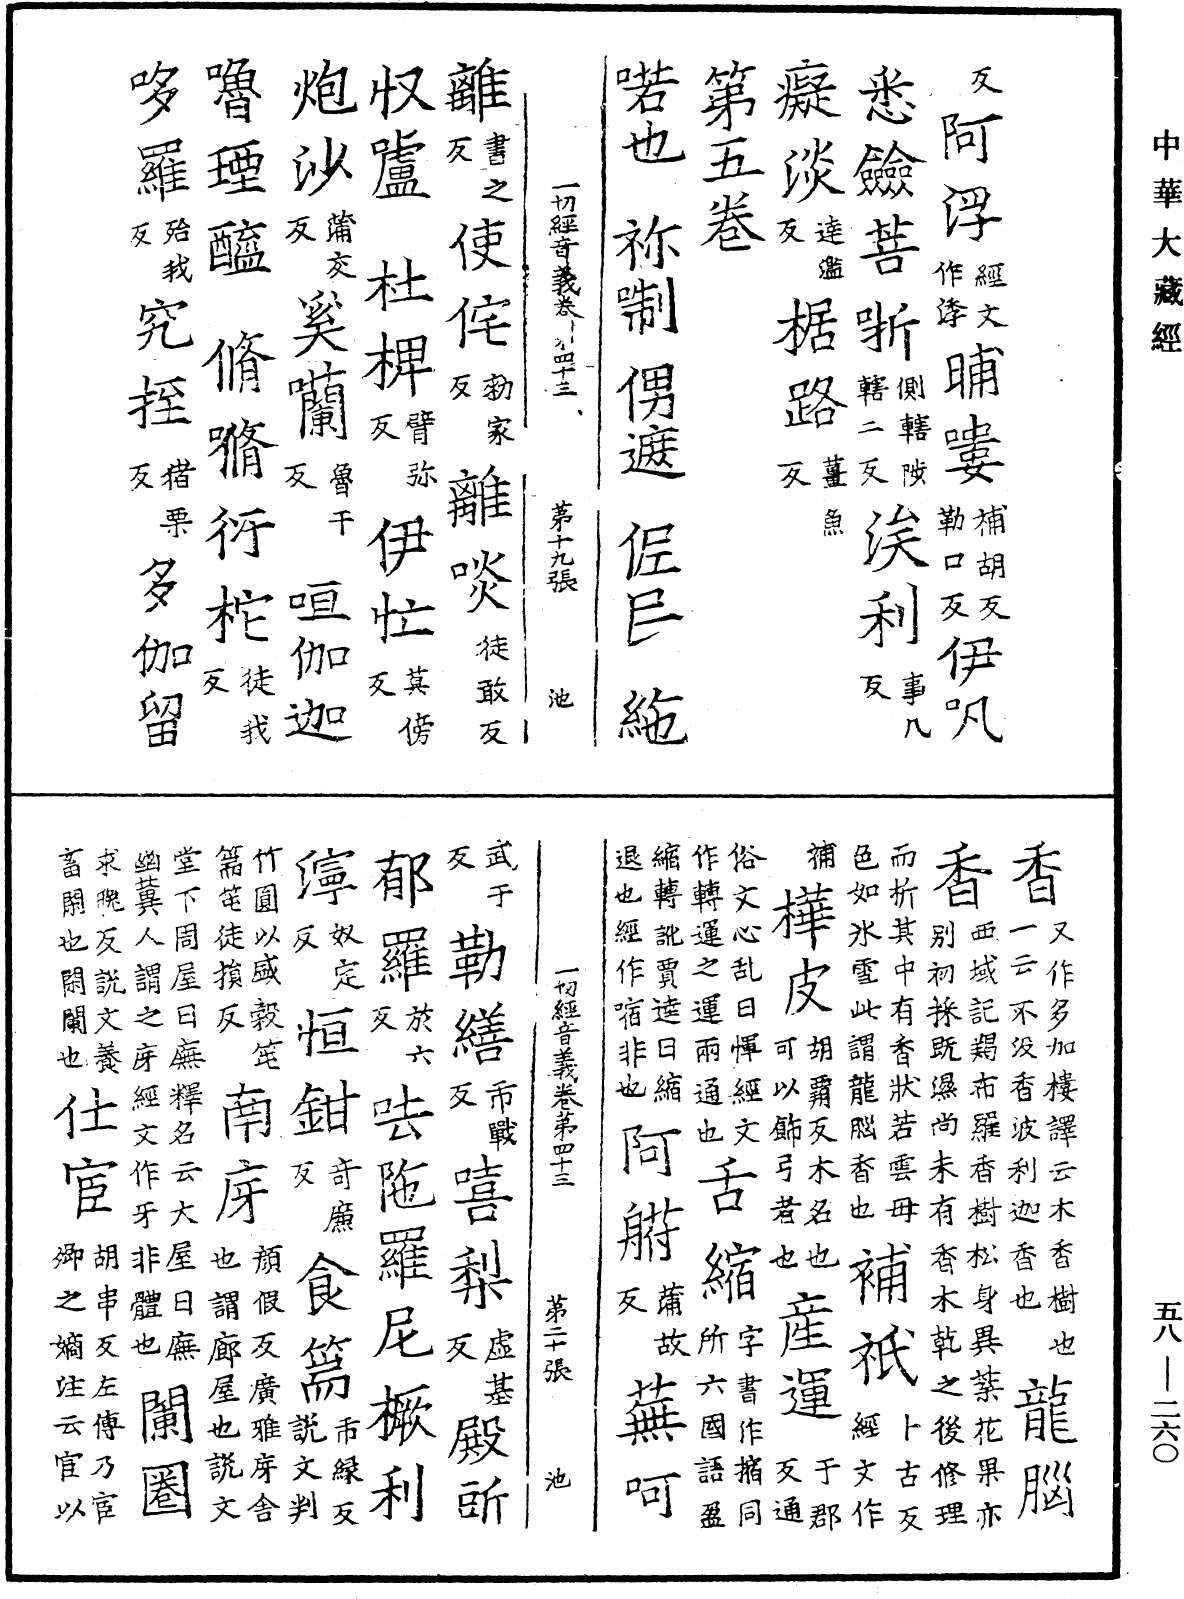 中華大藏經
反阿浮經文作湪晡嘍補胡反勒口反伊吠
悉鐱菩哳側轄陟轄二反涘利事几反
癡淡達濫反椐路薑魚反
第五卷
喏也 祢㗭 侽遮 㑌㠯 絁
一切經音義卷第四十三 第十九張 池
離書之反使侘勑家反離啖徒敢反
杈嚧 杜椑臂弥反 伊忙莫傍反
炮沙蒲交反奚囒魯干反 咺伽迦
嚕㻎醯 脩㗜衍柁徒我反
哆羅殆我反究挃猪栗反多伽留
香又作多加樓譯云木香樹也一云不没香波利迦香也龍腦
香西域記羯布羅香樹松身異葉花果亦別初採既濕尚未有香木乾之後修理
而析其中有香狀若雲母色如氷雪此謂龍腦香也補祇卜古反經文作
補樺皮胡霸反木名也可以飾弓者也產運于郡反通
俗文心乱曰惲經文作轉運之運兩通也舌縮字書作摍同所六國語盈
縮轉訛賈逵曰縮退也經作宿非也阿𦨵蒲故反蕪呵
一切經音義卷第四十三 第二十張 池
武于反勒繕市戰反嘻梨虛基反殿㪽
郁羅於六反呿陁羅尼橛利
濘奴定反恒鉗竒廉反食篅市緣反說文判
竹圓以盛穀笹篅笹徒損反南庌顏假反廣雅庌舍也謂廊屋也說文
堂下周屋曰廡釋名云大屋曰廡幽冀人謂之庌經文作牙非體也闌圈
求晚反說文養畜閑也閑闌也仕宦胡串反左傳乃宦卿之嫡注云宦以
五八—二六〇